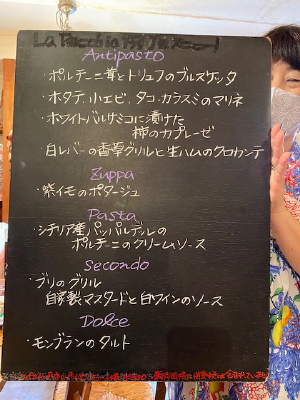 Antipasto
・ポルチーニ茸とトリュフのブルスケッタ
・ホタテ、小エビ、タコ、カラスミのマリネ
・ホワイトバルサミコに漬けた
柿のカプレーゼ
白レバーの香草グリルと生ハムのクロワンテ
Zuppa
・紫イモのポタージュ
Pasta
・シチリア産パッパルデッレの
ポルチーニのクリームソース
Secondo
・ブリのグリル
自家製マスタードと白ワインのソース
Dolce
・モンブランのタルト